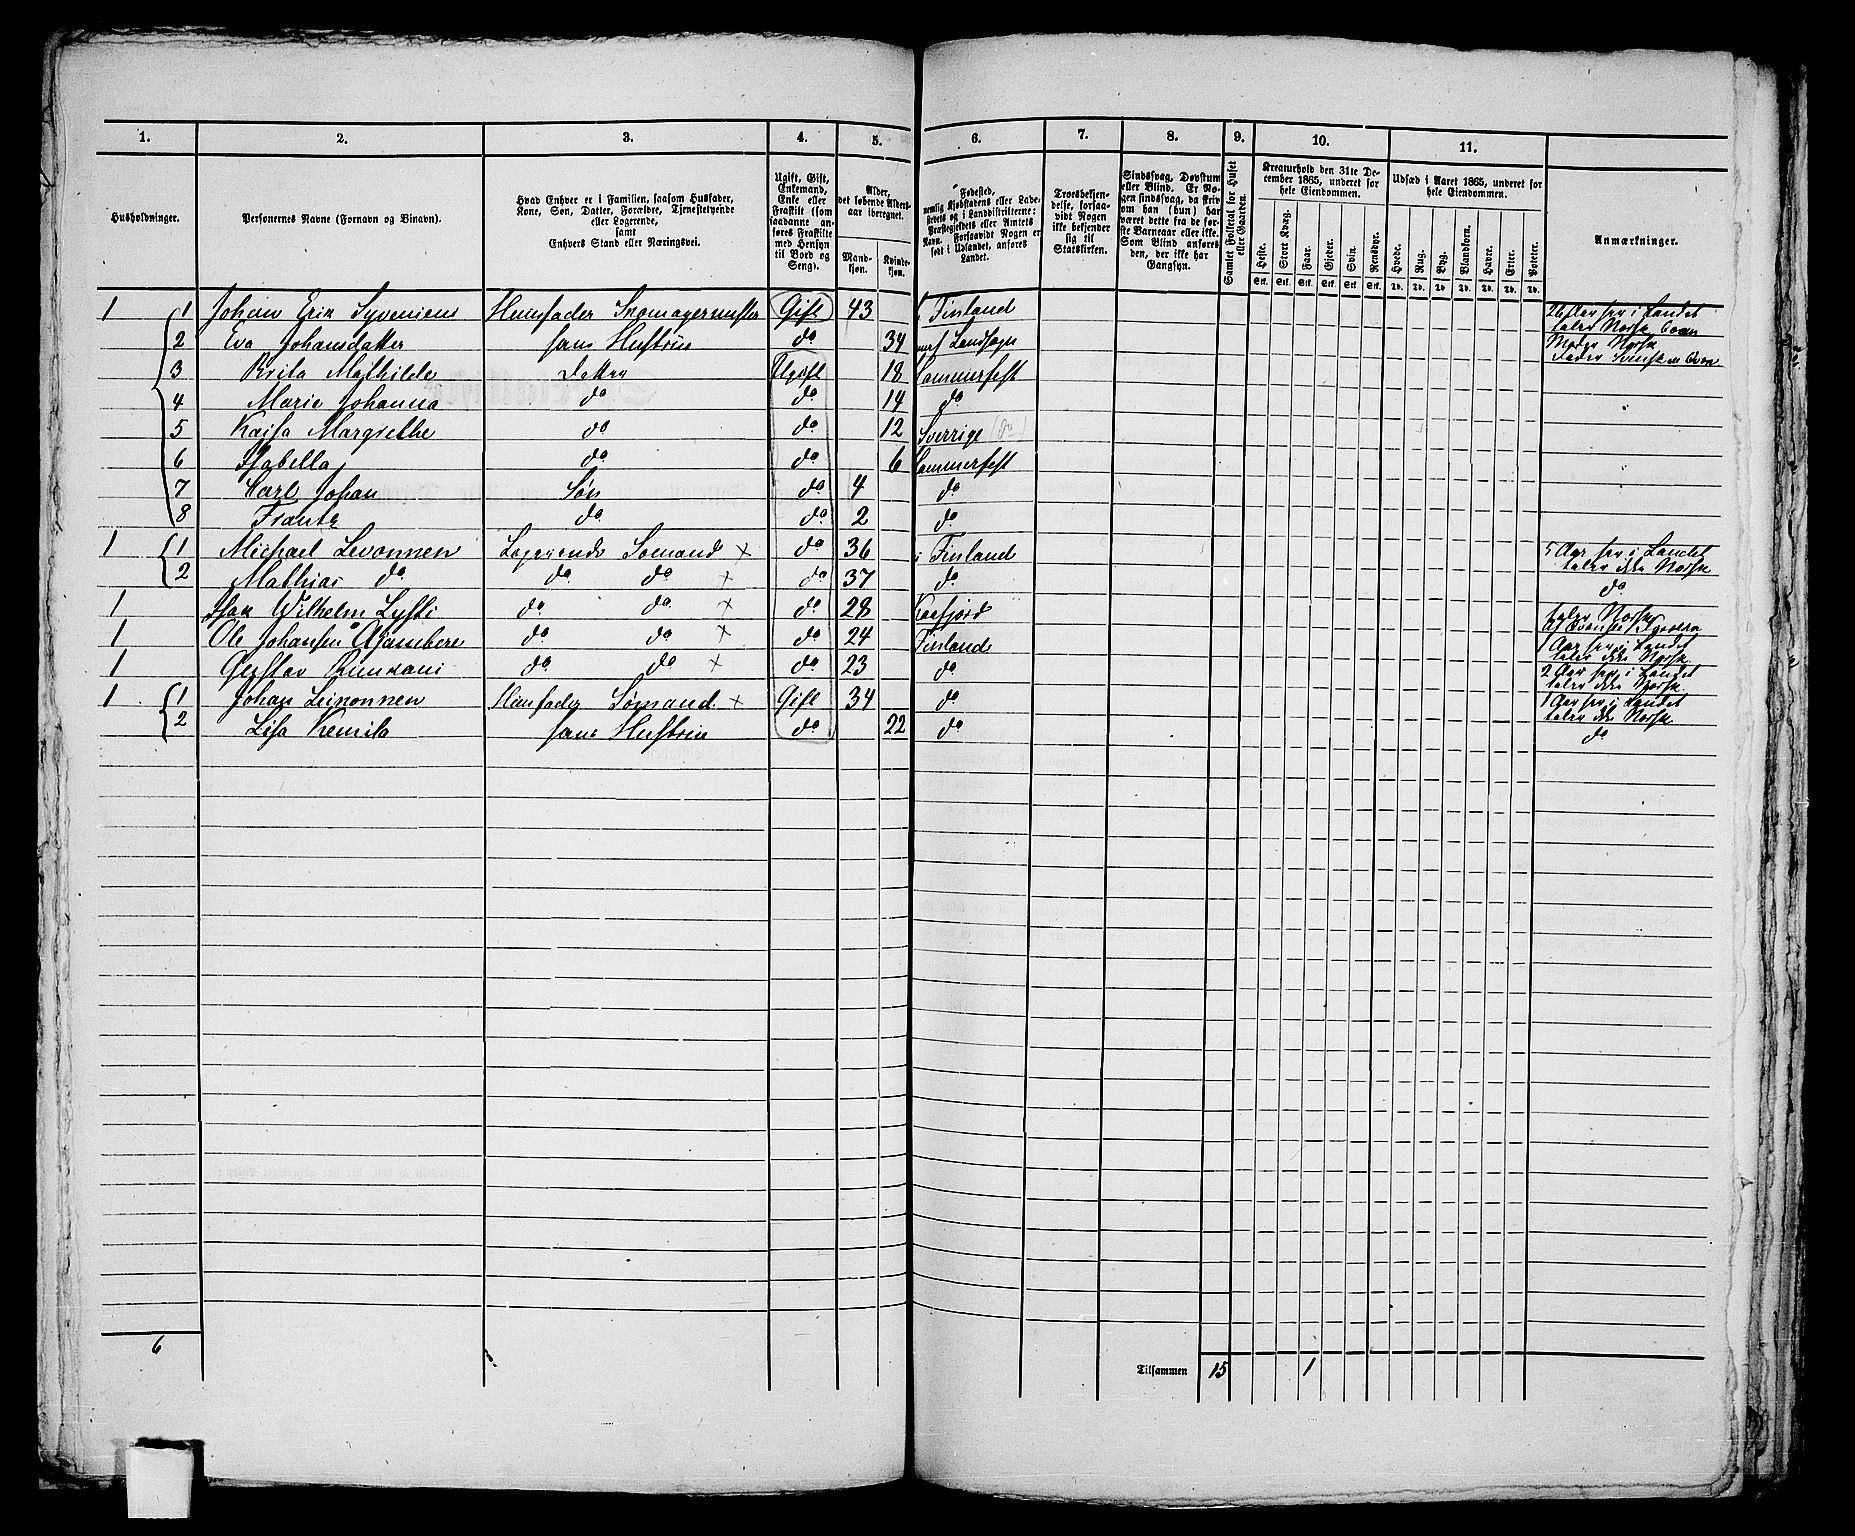 1. 2. 3. 4. 5. 6. 7. 8. 9. 10. 11.
Husholdninger.
Personernes Navne (Fornavn og Binavn).
Hvad Enhver er i Familien, saasom Husfader,
Kone, Søn, Datter, Forældre, Tjenestetyende
eller Logerende,
samt
Enhvers Stand eller Næringsvei.
Ugift, Gift,
Enkemand,
Enke eller
Fraskilt (som
saadanne an-
føres Fraskilte
med Hensyn
til Bord og
Seng).
Alder,
det løbende Alders-
aar iberegnet.
Mand-
kjøn.
Kvinde-
kjøn.
Fødested,
nemlig Kjøbstadens eller Lade-
stedets og i Landdistrikterne:
Præstegjeldets eller Annexets
Navn. Forsaavidt Nogen er
født i Udlandet, anføres
Landet.
Troesbekjen-
delse, forsaa-
vidt Nogen
ikke bekjender
sig til
Statskirken.
Sindssvag, Døvstum
eller Blind. Er No-
gen sindssvag, da skriv
om han (hun) har
været dette fra de før-
ste Barneaar eller ikke.
Som Blind anføres
den, der ikke har
Gangsyn.
Samlet Folketal for Huset
eller Gaarden.
Kreaturhold den 31te De-
cember 1865, underet for
hele Eiendommen.
Heste. Stort Kvæg. Faar. Gjeder. Svin. Rensdyr.
Stk. Stk. Stk. Stk. Stk. Stk.
Udsæd i Aaret 1865, underet for
hele Eiendommen.
Hvede. Rug. Byg. Blandkorn. Havre. Erter. Poteter.
Td. Td. Td. Td. Td. Td. Td.
Anmærkninger.
1 1 Johan Erik Husfader Skomagermester Gift 43 Finland 26 Aar her i Landet
taler Norsk
2 Eva Johansdatter hans Hustru do 34 Moder Norsk
3 Brita Mathilde Datter Ugift 18 Hammerfest Fader
4 Marie Johanna do do 14 do
5 Kaisa Margrethe do do 12 Sverrige
6 Isabella do do 6 Hammerfest
7 Karl Johan Søn do 4 do
8 Frantz do do 2 do
1 1 Michael Levonnen Logerende Sømand × do 36 i Finland 5 Aar her i Landet
taler ikke Norsk
2 Mathias do do do × do 37 do do
1 Isak Wilhelm do do × do 28 Kaafjord taler Norsk
1 Ole Johansen do do × do 24 Finland 1 Aar her i Landet
taler ikke Norsk
1 Gustav do do × do 23 do 2 Aar her i Landet
taler ikke Norsk
1 1 Johan Leinonnen Husfader Sømand × Gift 34 do 1 Aar her i Landet
taler ikke Norsk
2 Lisa Kemila hans Hustru do 22 do do
6
Tilsammen 15 1